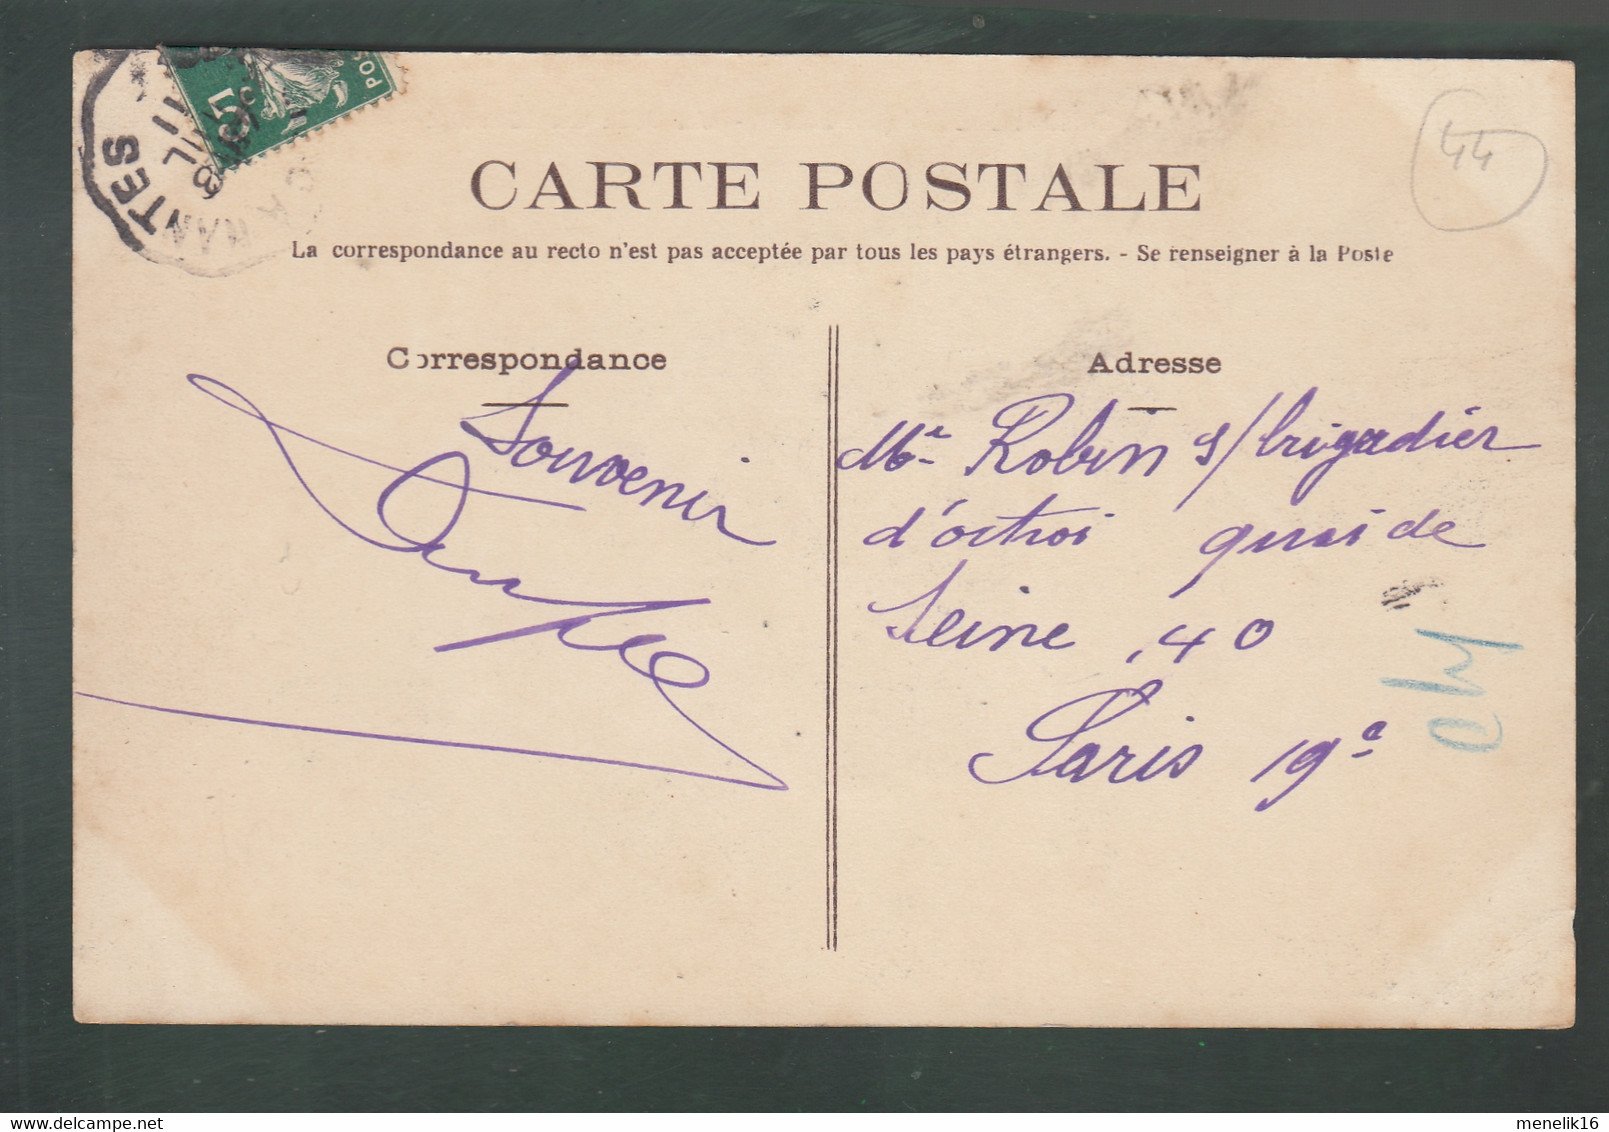 5
POS
NANTES
8
11
44
CARTE POSTALE
La correspondance au recto n'est pas acceptée par tous les pays étrangers. - Se renseigner à la Poste
Correspondance
Souvenir
Adresse
Mr Robin s/brigadier
d'octroi quai de
Seine, 40
Paris 19e
menelik16